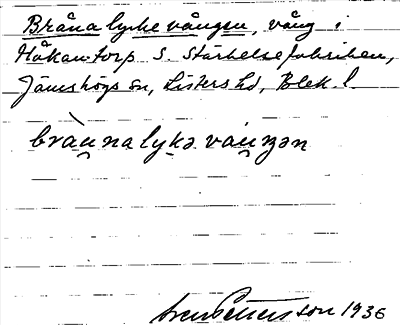 Bråna lycke vången, vång i
Håkantorp S. Stärkelsefabriken,
Jämshögs sn, Listers hd, Blek. l.
bràu̯nalykə váu̯ŋən
Sven Pettersson 1936